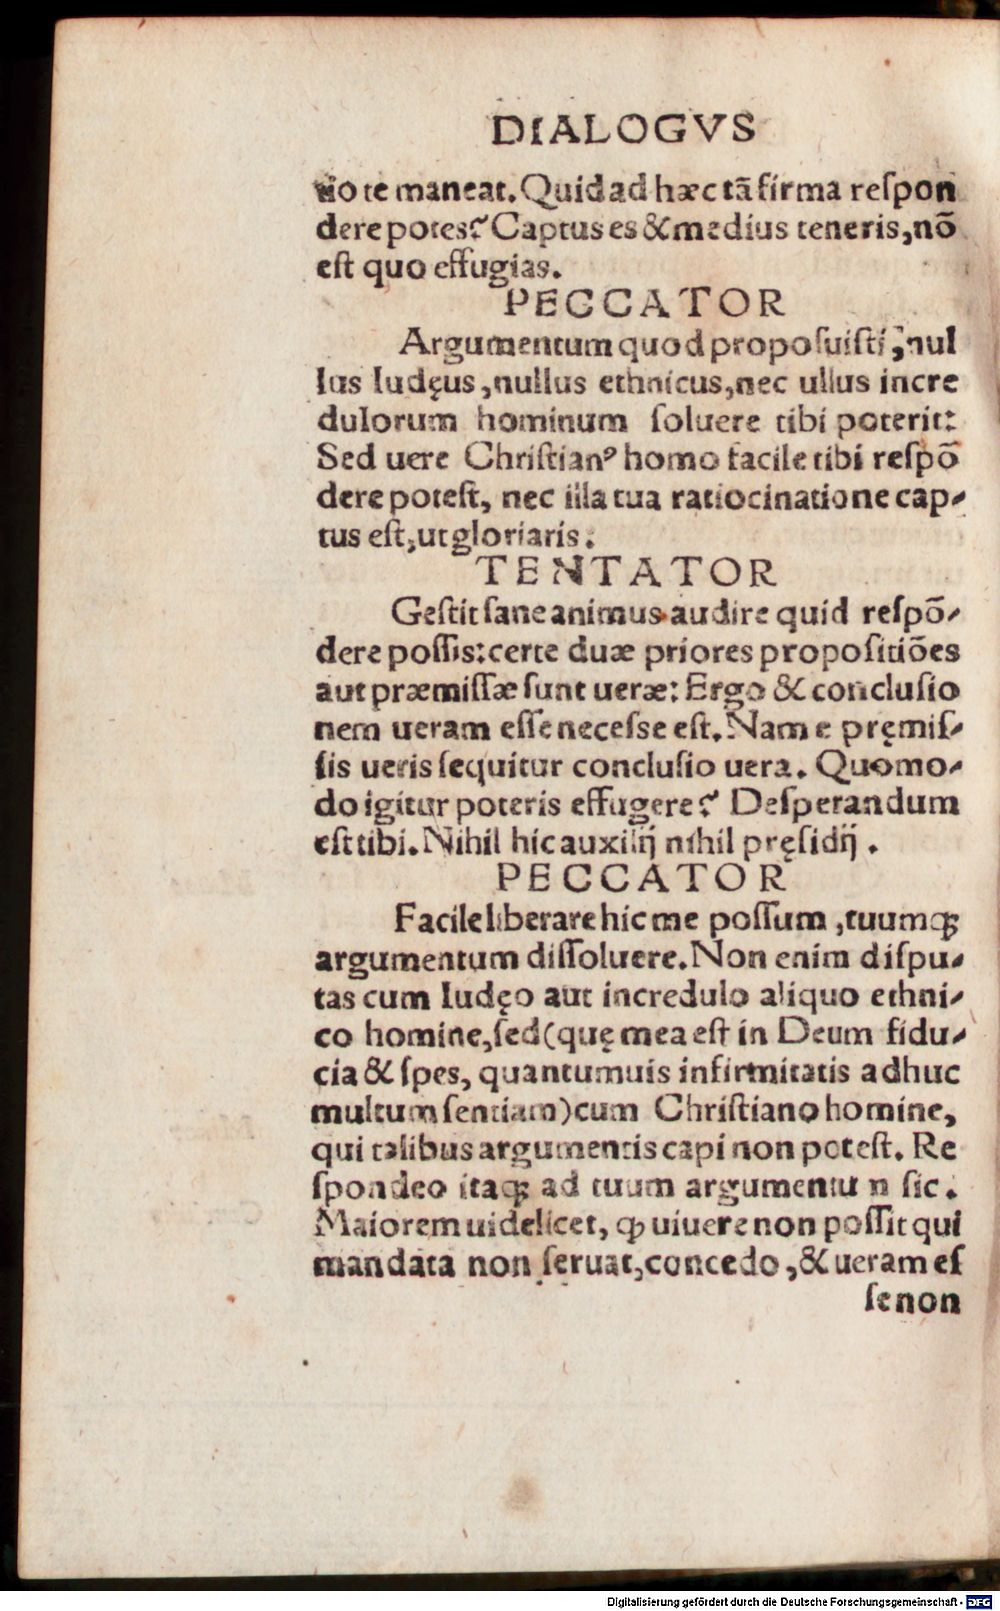 DIALOGVS
tio te maneat. Quid ad hæc tā firma reſpon
dere potes? Captus es & medius teneris, nō
eſt quo effugias.
PECCATOR
Argumentum quod propoſuiſti, nul
lus Iudęus, nullus ethnicus, nec ullus incre
dulorum hominum ſoluere tibi poterit:
Sed uere Chriſtianꝰ homo facile tibi reſpō
dere poteſt, nec illa tua ratiocinatione cap-
tus eſt, ut gloriaris.
TENTATOR
Geſtit ſane animus audire quid reſpō-
dere poſſis: certe duæ priores propoſitiōes
aut præmiſſæ ſunt ueræ: Ergo & concluſio
nem ueram eſſe neceſse eſt. Nam e pręmiſ-
ſis ueris ſequitur concluſio uera. Quomo-
do igitur poteris effugere? Deſperandum
eſt tibi. Nihil hic auxilij nihil pręſidij.
PECCATOR
Facile liberare hic me poſſum, tuumq́ꝫ
argumentum diſſoluere. Non enim diſpu-
tas cum Iudęo aut incredulo aliquo ethni-
co homine, ſed (quę mea eſt in Deum fidu-
cia & ſpes, quantumuis infirmitatis adhuc
multum ſentiam) cum Chriſtiano homine,
qui talibus argumentis capi non poteſt. Re
ſpondeo itaqꝫ ad tuum argumentu n ſic.
Maiorem uidelicet, ꝙ uiuere non poſſit qui
mandata non ſeruat, concedo, & ueram eſ
ſe non
Digitalisierung gefördert durch die Deutsche Forschungsgemeinschaft - DFG